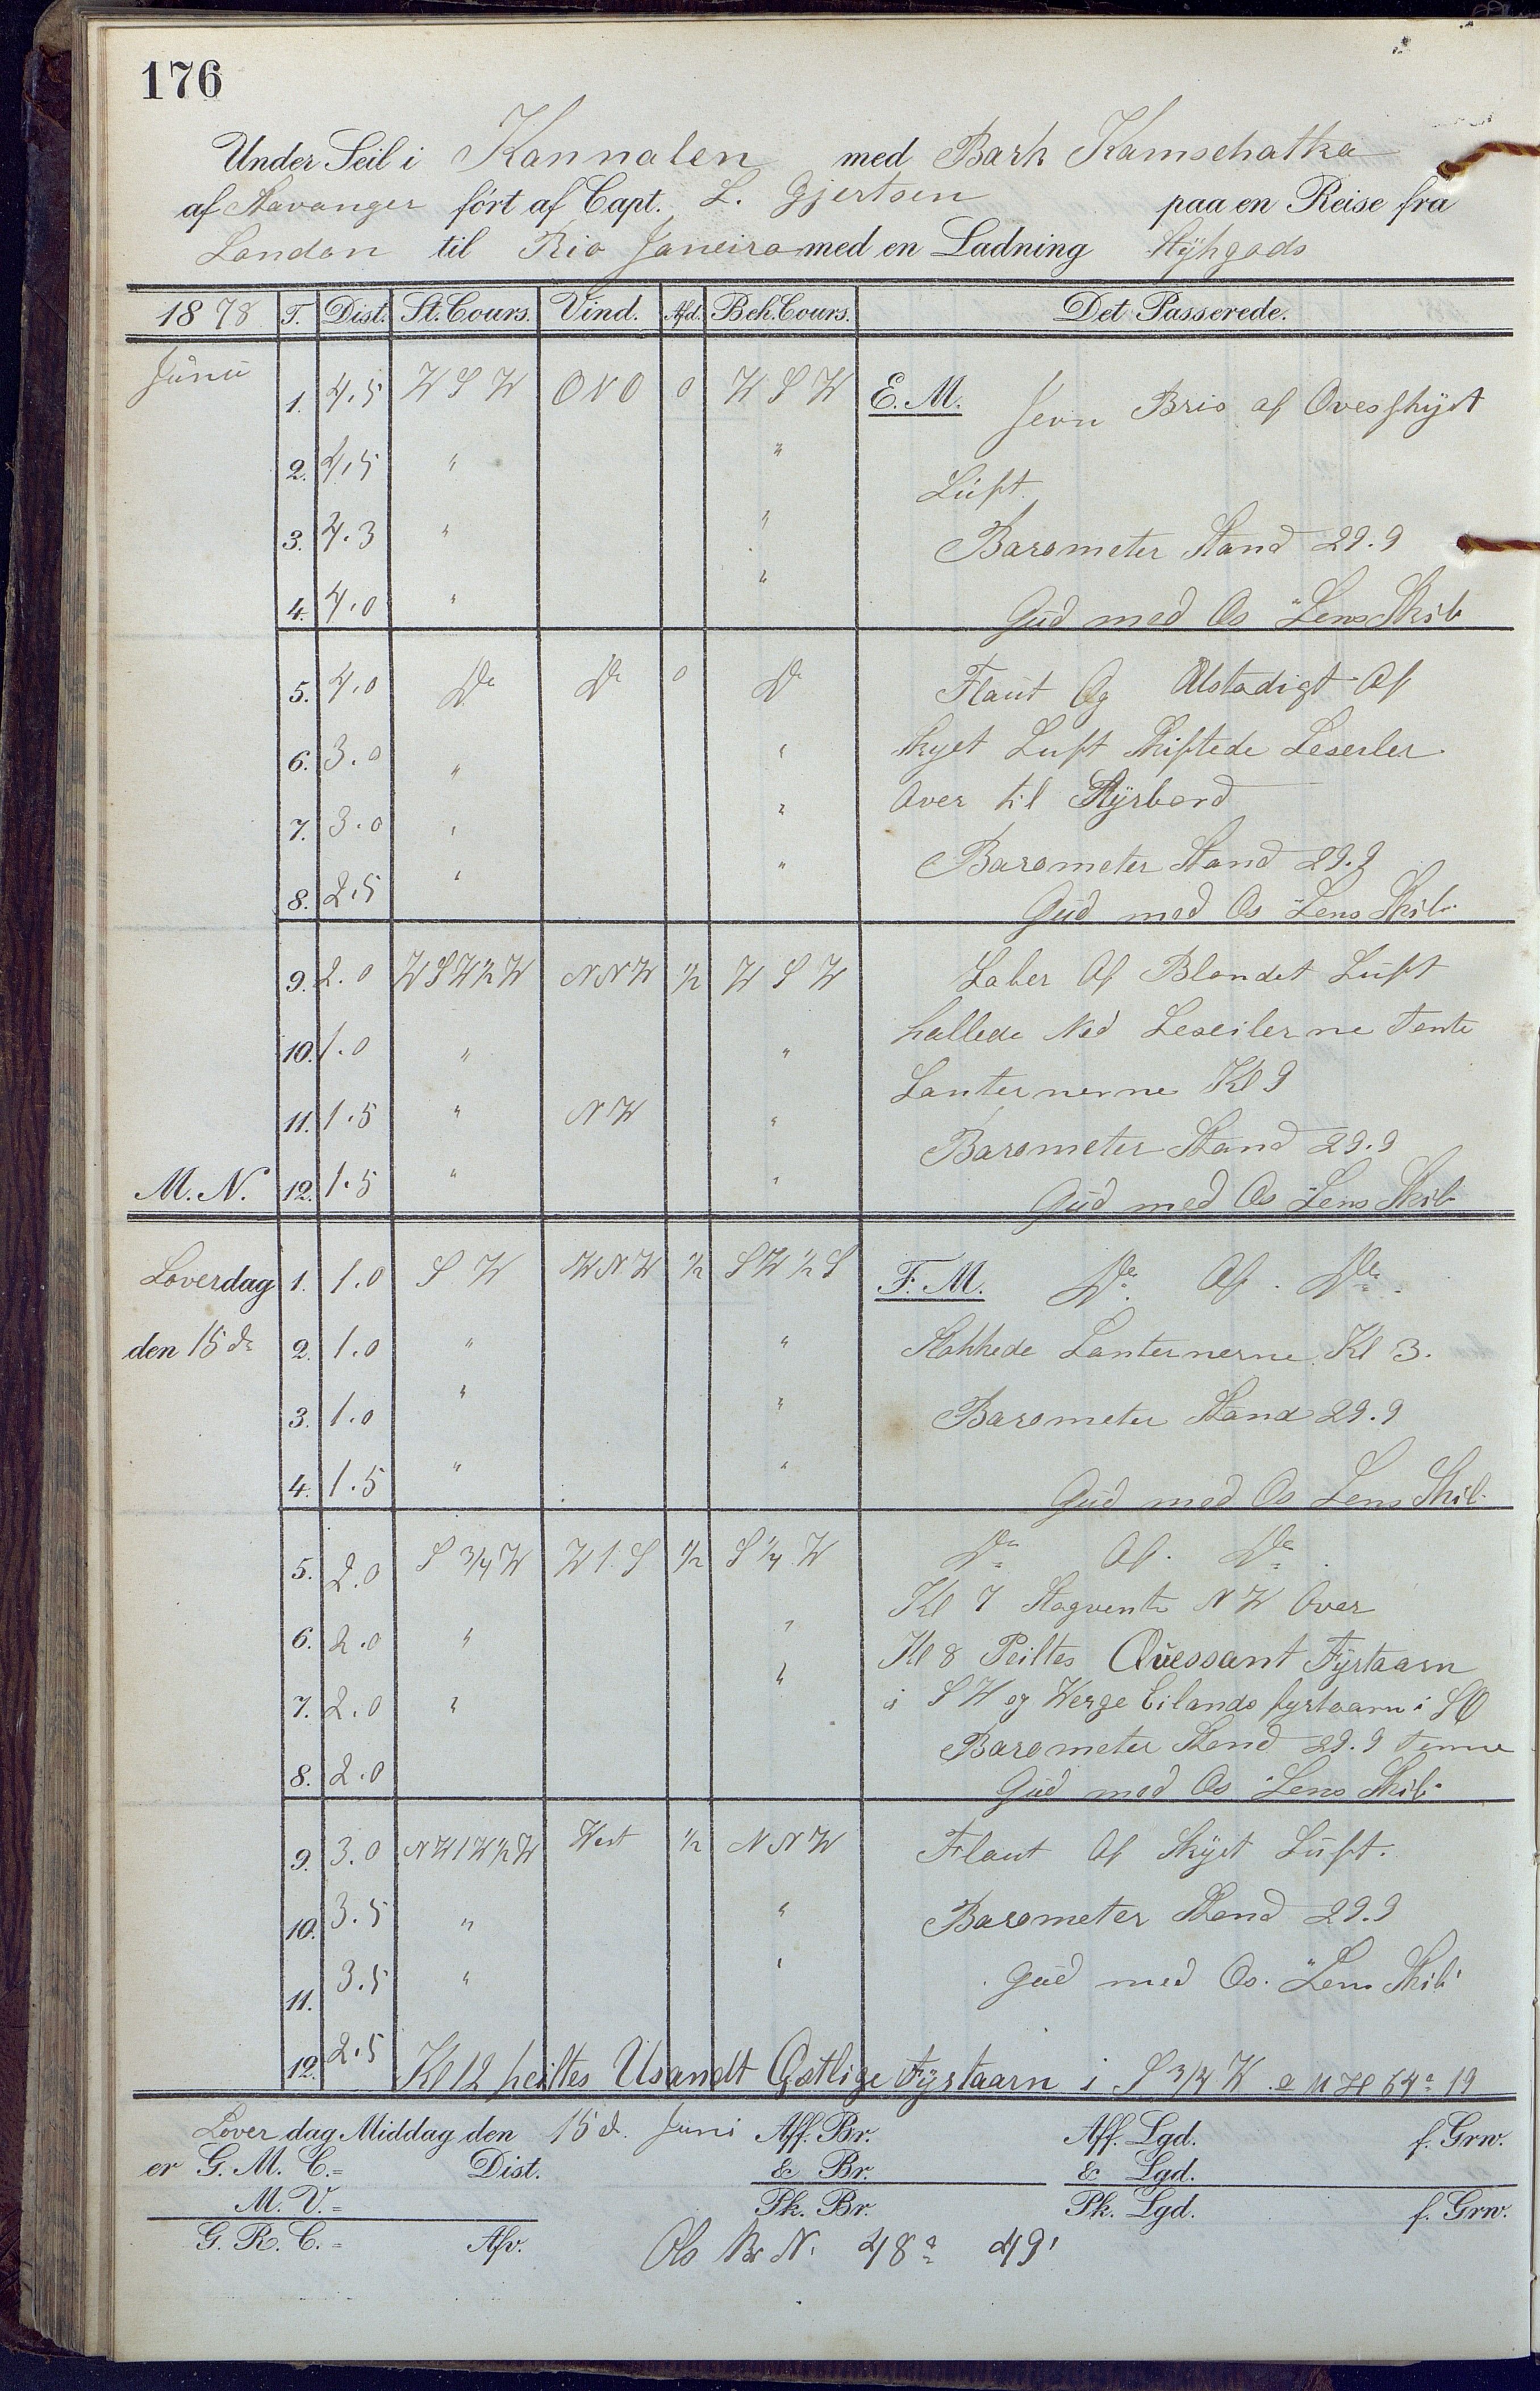 176
Under Seil i Kannalen med Bark Kamschatka
af Stavanger ført af Capt. L. Gjertsen paa en Reise fra
London til Rio Janeiro med en Ladning Stÿkgods
1878 T. Dist. St. Cours. Vind. Afd. Beh. Cours. Det Passerede.
Junii 1. 4.5 W S W O N O 0 W S W E. M. Jevn Bris af Overskÿet
2. 4.5 " " Lüft
3. 4.3 " " Barometer Stand 29.9
4. 4.0 " " Güd med Os Lens Skib
5. 4.0 Do Do 0 Do Flaut Og Ustadigt Af
6. 3.0 " " Skyet Luft Skiftede Leseiler
7. 3.0 " " Over til Stÿrbord
8. 2.5 " " Barometer Stand 29.9
Güd med Os Lens Skib
9. 2.0 WSW½W NNW ½ W S W Laber Af Blandet Lüft
10. 1.0 " " hallede Ned Leseilerne Tente
11. 1.5 " N W " Lanternerne Kl 9
Barometer Stand 29.9
M. N. 12. 1.5 " " Güd med Os Lens Skib
Loverdag 1. 1.0 S W WNW ½ SW½S F. M. Do Af Do
den 15de 2. 1.0 " " Slokkede Lanternerne Kl 3.
3. 1.0 " " Barometer Stand 29.9
4. 1.5 " " Güd med Os Lens Skib
5. 2.0 S ¾ W W 1. S ½ S ¼ W Do Af. Do
Kl 7 Stagvente N W Over
6. 2.0 " " Kl 8 Peiltes Quessant Fÿrtaarn
7. 2.0 " " i S W og Werge Eilands fyrtaarn i SO
Barometer Stand 29.9
8. 2.0 Güd med Os Lens Skib
9. 3.0 NW1W½W West ½ N N W Flaut Af Skÿet Lüft.
10. 3.5 " " Barometer Stand 29.9
11. 3.5 " " Güd med Os. Lens Skib
12. 2.5 Kl 12 peiltes Usandt Ostlige Fÿrtaarn i S ¾ W
Lover dag Middag den 15d. Juni Aff. Br. Aff. Lgd. f. Grw.
er G. M. C. = Dist. & Br. & Lgd.
M. V. = Pk. Br. Pk. Lgd. f. Grw.
G. R. C. = Afv. Obs Br N. 48° 49'